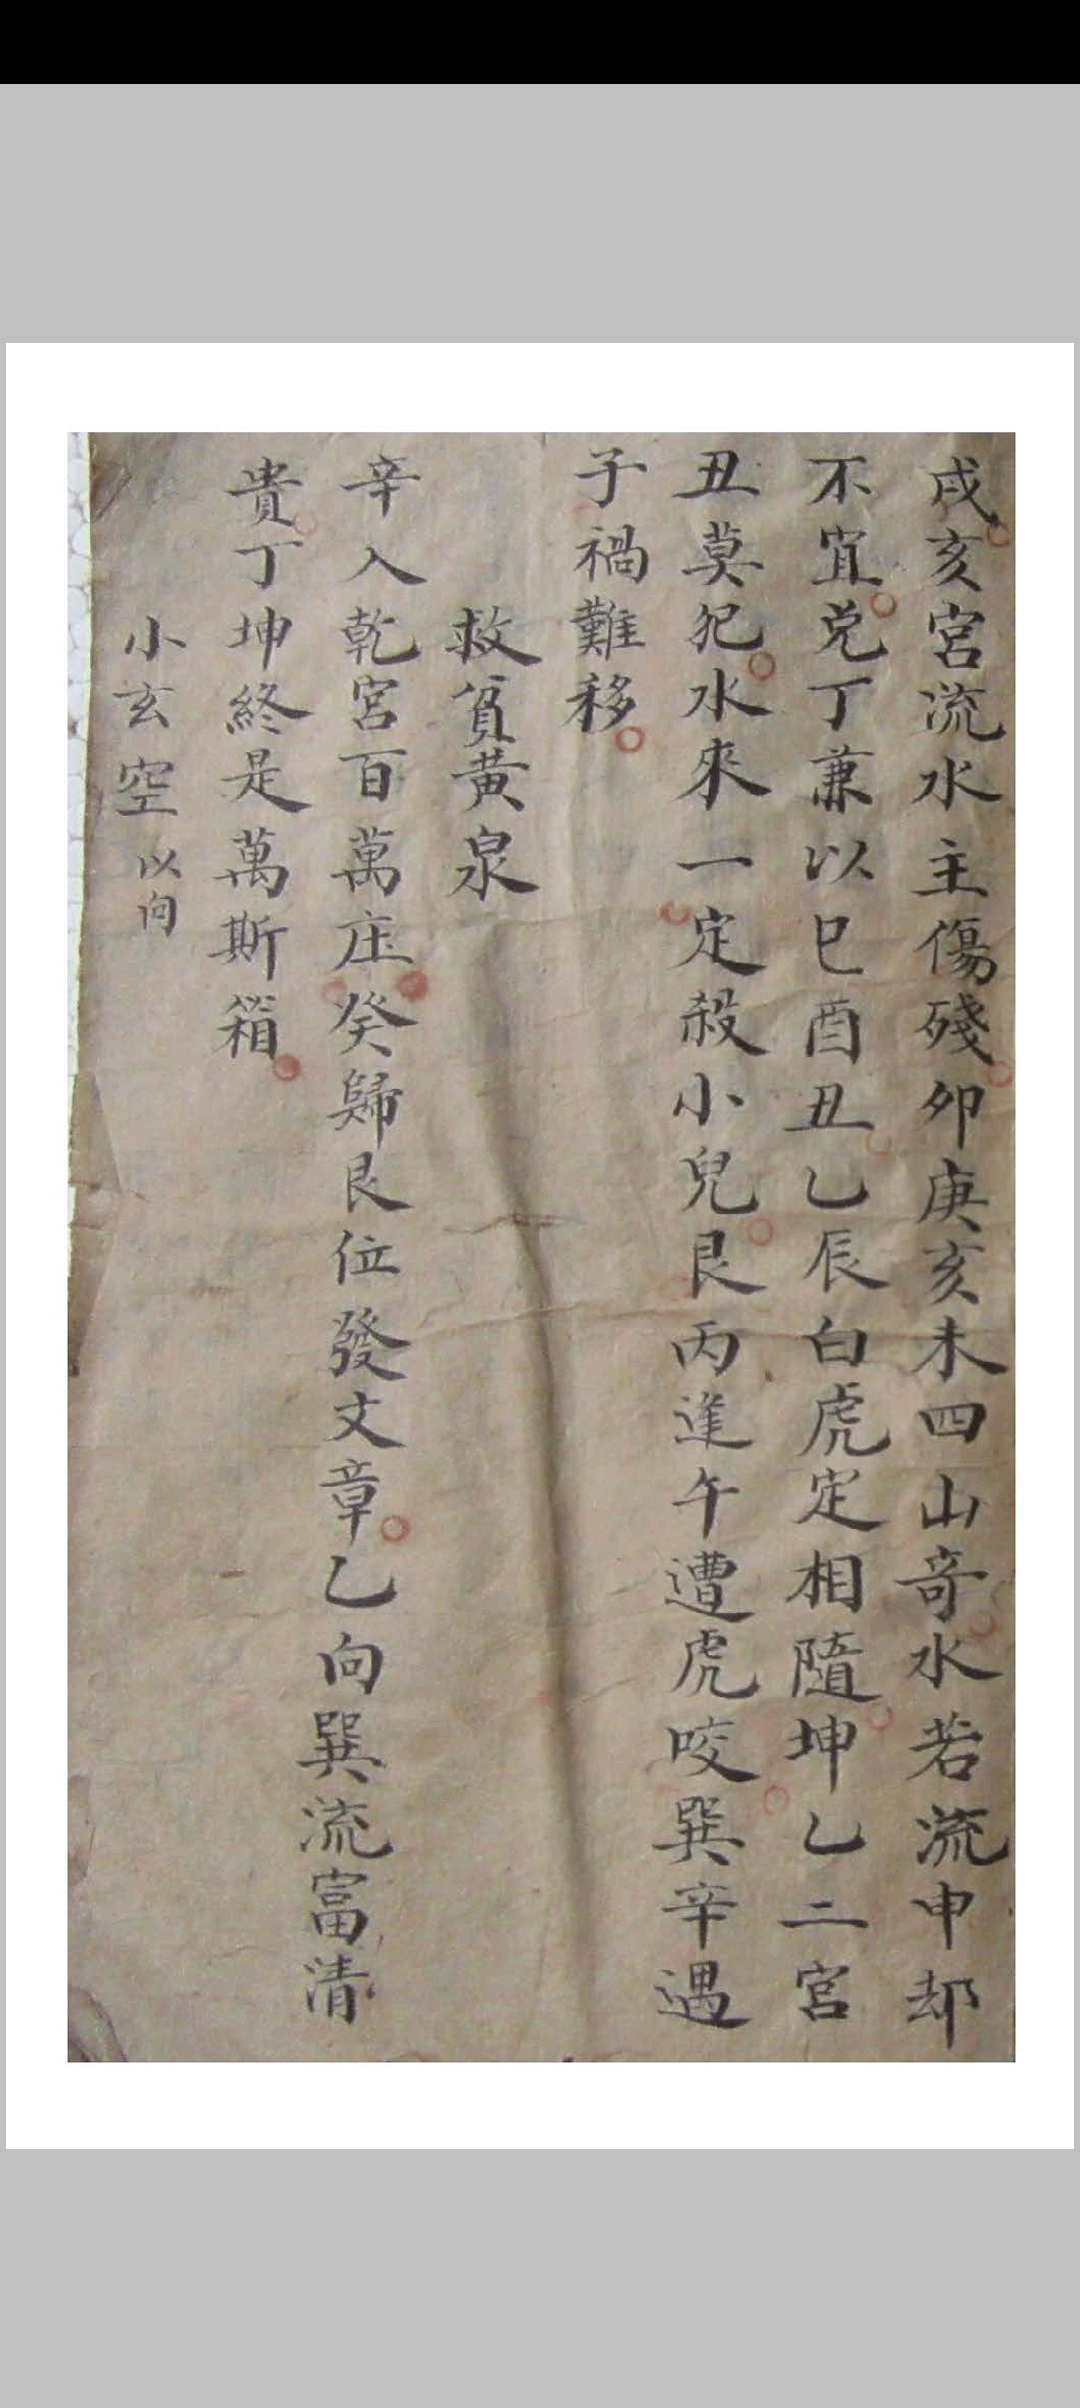 戌亥宮流水主傷殘卯庚亥未四山奇水若流申却
不宜兌丁兼以巳酉丑乙辰白虎定相隨坤乙二宮
丑莫犯水來一定殺小兒艮丙逢午遭虎咬巽辛遇
子禍難移
救貧黃泉
辛入乾宮百萬庄癸歸艮位發文章乙向巽流富清
貴丁坤終是萬斯箱
小玄空以向